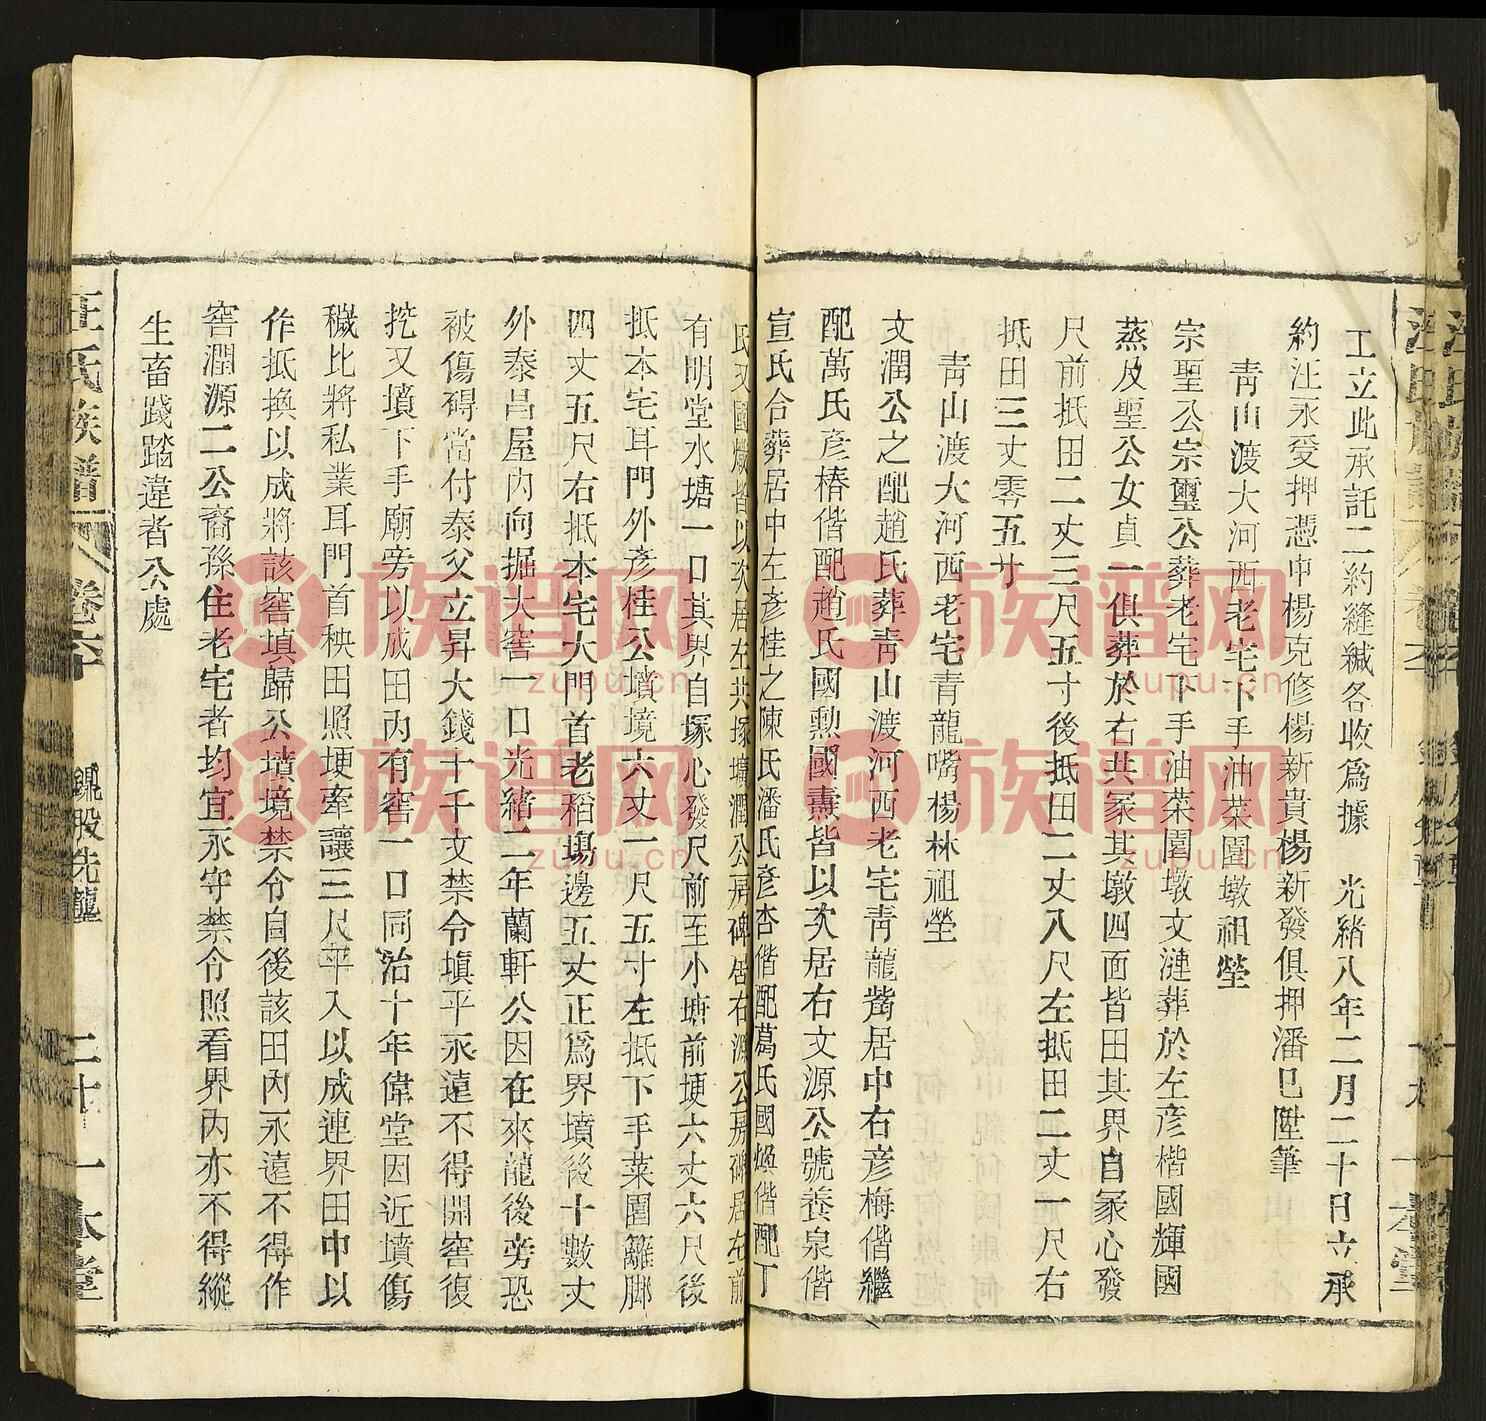 工立此承託二約縫緘各收爲據　光緒八年二月二十日立承
約汪永受押憑中楊克修楊新貴楊新發俱押潘巳陞筆
青山渡大河西老宅下手油菜園墩祖塋
宗聖公宗璽公葬老宅下手油菜園墩文漣葬於左彦楷國輝國
蒸及聖公女貞一俱葬於右共冢其墩四面皆田其界自冢心發
尺前抵田二丈三尺五寸後抵田二丈八尺左抵田二丈一尺右
抵田三丈零五寸
青山渡大河西老宅青龍嘴楊林祖塋
文潤公之配趙氏葬青山渡河西老宅青龍嘴居中右彦梅偕繼
配萬氏彦椿偕配趙氏國勲國燾皆以次居右文源公號養泉偕
宣氏合葬居中左彦桂之陳氏潘氏彦杏偕配葛氏國煥偕配丁
氏又國皆以次居左共塚壙潤公房碑居右源公房碑居左前
有明堂水塘一口其界自塚心發尺前至小塘前埂六丈六尺後
抵本宅耳門外彦桂公墳境六丈一尺五寸左抵下手菜園籬脚
四丈五尺右抵本宅大門首老稻場邊五丈正爲界墳後十數丈
外泰昌屋内向掘大窖一口光緒二年蘭軒公因在來龍後旁恐
被傷碍當付泰父立昇大錢十千文禁令塡平永遠不得開窖復
挖又墳下手廟旁以成田内有窖一口同治十年偉堂因近墳傷
穢比將私業耳門首秧田照埂牽讓三尺平入以成連界田中以
作抵換以成將該窖塡歸公墳境禁令自後該田内永遠不得作
窖潤源二公裔孫住老宅者均宜永守禁令照看界内亦不得縱
生畜踐踏違者公處
汪氏族譜　卷六　先壠　二十　一本堂
族谱网
zupu.cn
族谱网
zupu.cn
族谱网
zupu.cn
族谱网
zupu.cn